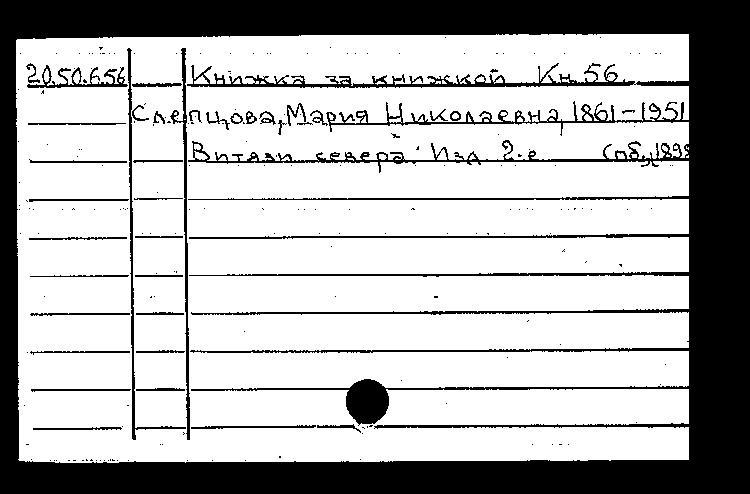 20.50.6.56 Книжка за книжкой Кн. 56.
Слепцова, Мария Николаевна, 1861-1951
Витязи севера. Изд. 2-е Спб., 1898